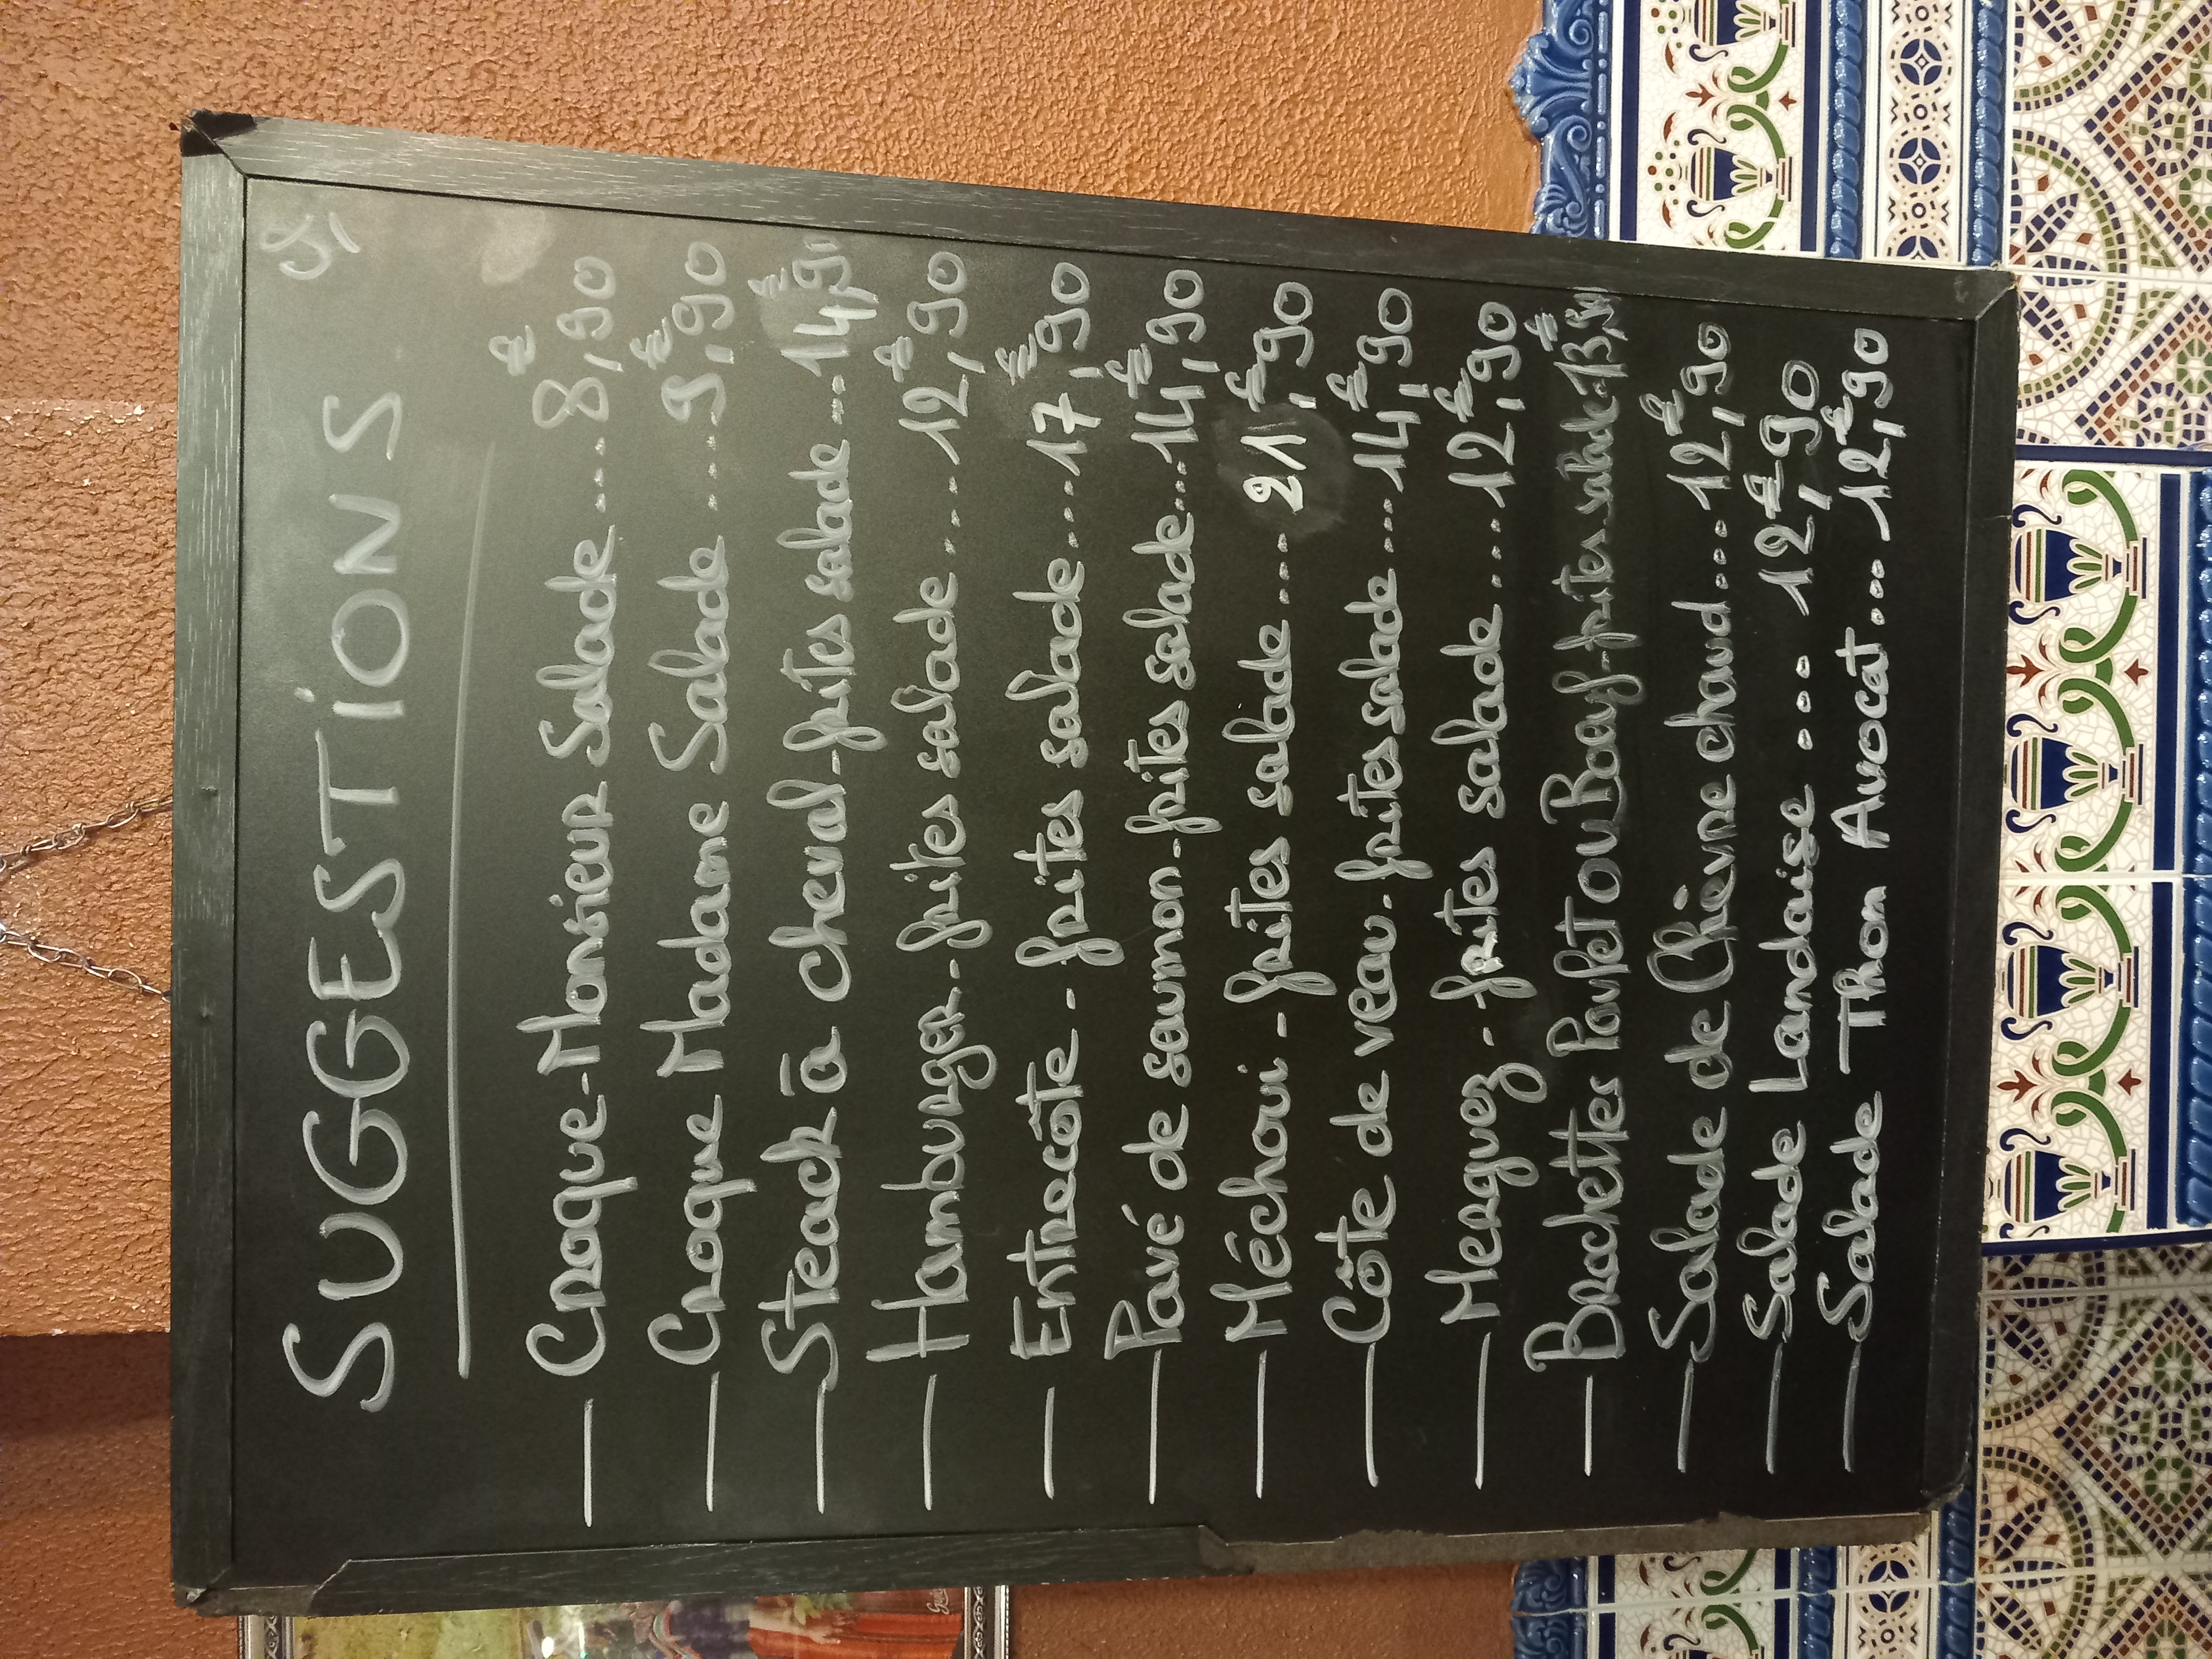 SUGGESTIONS
— Croque-Monsieur Salade .... 8,€90
— Croque Madame Salade .... 9,€90
— Steack à cheval-frites salade ... 14,€90
— Hamburger-frites salade .... 12,€90
— Entrecôte - frites salade ... 17,€90
— Pavé de saumon-frites salade... 14,€90
— Méchoui - frites salade .... 21,€90
— Côte de veau-frites salade ... 14,€90
— Merguez - frites salade ... 12,€90
— Brochettes Poulet ou Boeuf-frites salade. 13,€90
— Salade de Chèvre chaud ... 12,€90
— Salade Landaise ... 12,€90
— Salade Thon Avocat ... 12,€90